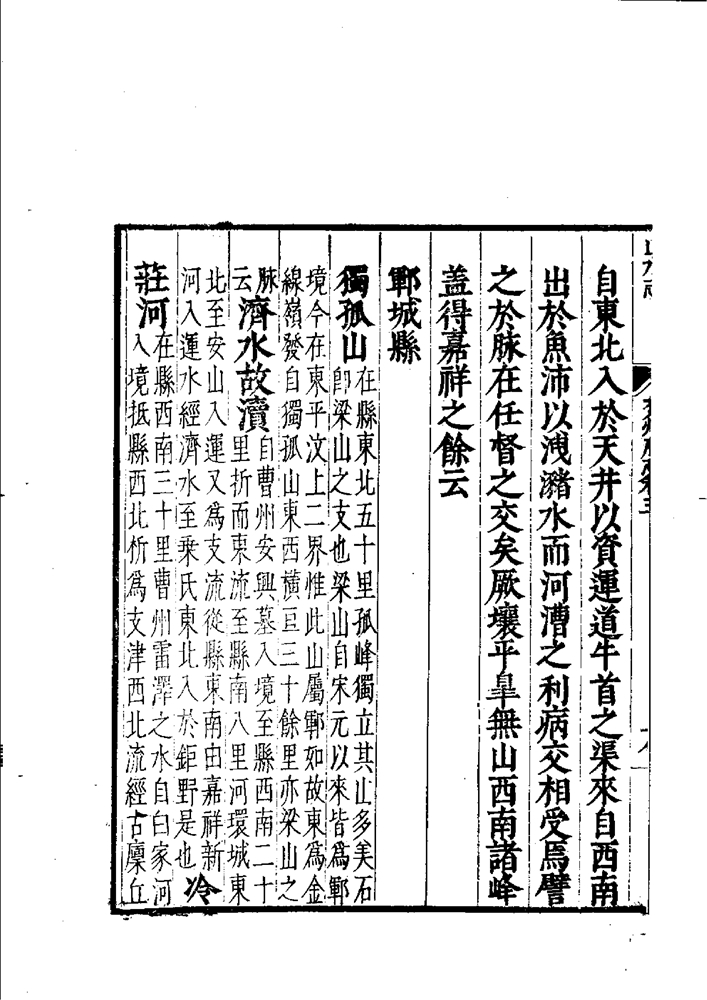 自東北入於天井以資運道牛首之渠來自西南
出於魚沛以洩瀦水而河漕之利病交相受焉譬
之於脉在任督之交矣厥壤平皐無山西南諸峰
盖得嘉祥之餘云
鄆城縣
獨孤山在縣東北五十里孤峰獨立其山多美石
卽梁山之支也梁山自宋元以來皆爲鄆
境今在東平汶上二界惟此山屬鄆如故東爲金
線嶺發自獨孤山東西橫亘三十餘里亦梁山之
脉云濟水故瀆自曹州安興墓入境至縣西南二十
里折而東流至縣南八里河環城東
北至安山入運又爲支流從縣東南由嘉祥新
河入運水經濟水至乗氏東北入於鉅野是也冷
莊河在縣西南三十里曹州雷澤之水自白家河
入境抵縣西北析爲支津西北流經古廩丘